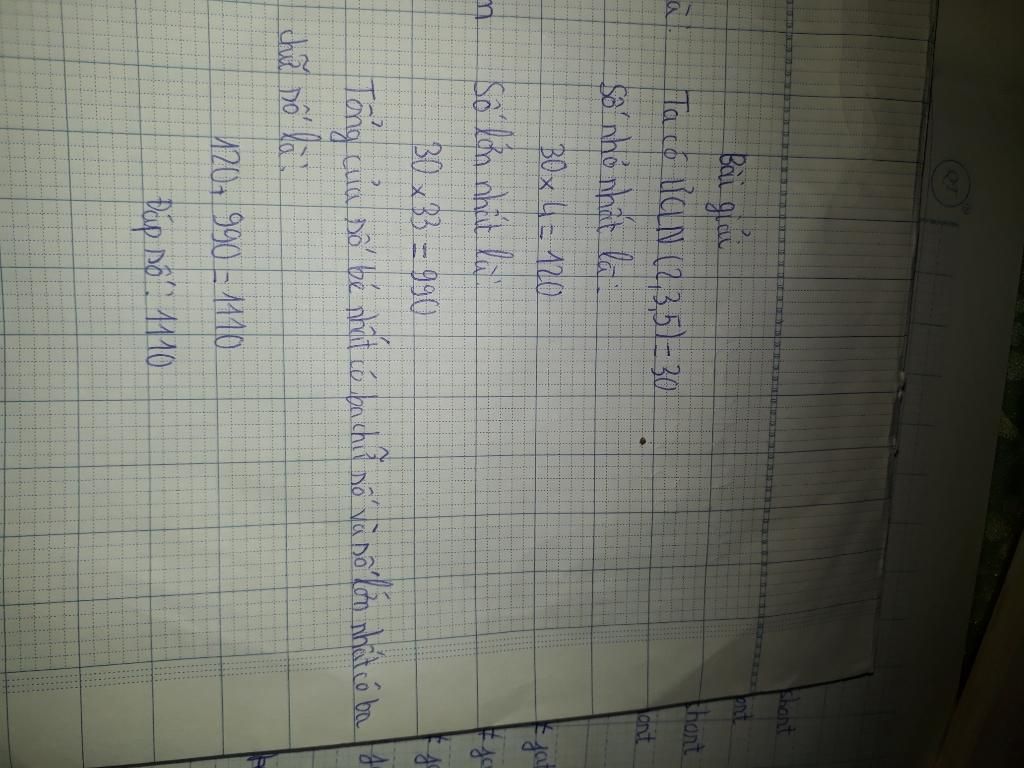 Bài giải
Ta có ƯCLN (2,3,5) = 30
Số nhỏ nhất là:
30 x 4 = 120
Số lớn nhất là:
30 x 33 = 990
Tổng của số bé nhất có ba chữ số và số lớn nhất có ba
chữ số là:
120 + 990 = 1110
Đáp số: 1110